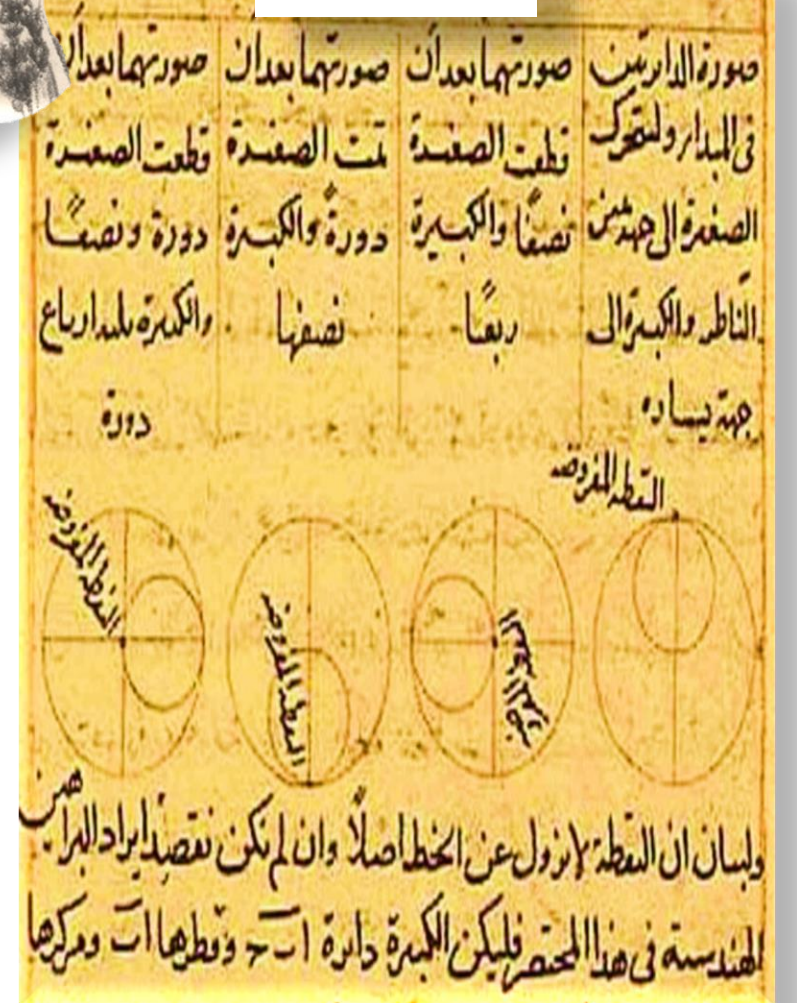 صورة الدايرتين
في المبدأ ولتتحرك
الصغيرة الى جهة يمين
الناظر والكبيرة الى
جهة يساره
صورتهما بعد ان
قطعت الصغيرة
نصفًا والكبيرة
ربعًا
صورتهما بعد ان
تمت الصغيرة
دورةً والكبيرة
نصفها
صورتهما بعد ان
قطعت الصغيرة
دورة ونصفًا
والكبيرة ثلثة ارباع
دورة
النقطة المفروضة
النقطة المفروضة
النقطة المفروضة
النقطة المفروضة
ولبيان ان النقطة لا تزول عن الخط اصلًا وان لم نكن نقصد ايراد البراهين
الهندسية في هذا المختصر فليكن الكبيرة دائرة اب وقطرها اب ومركزها